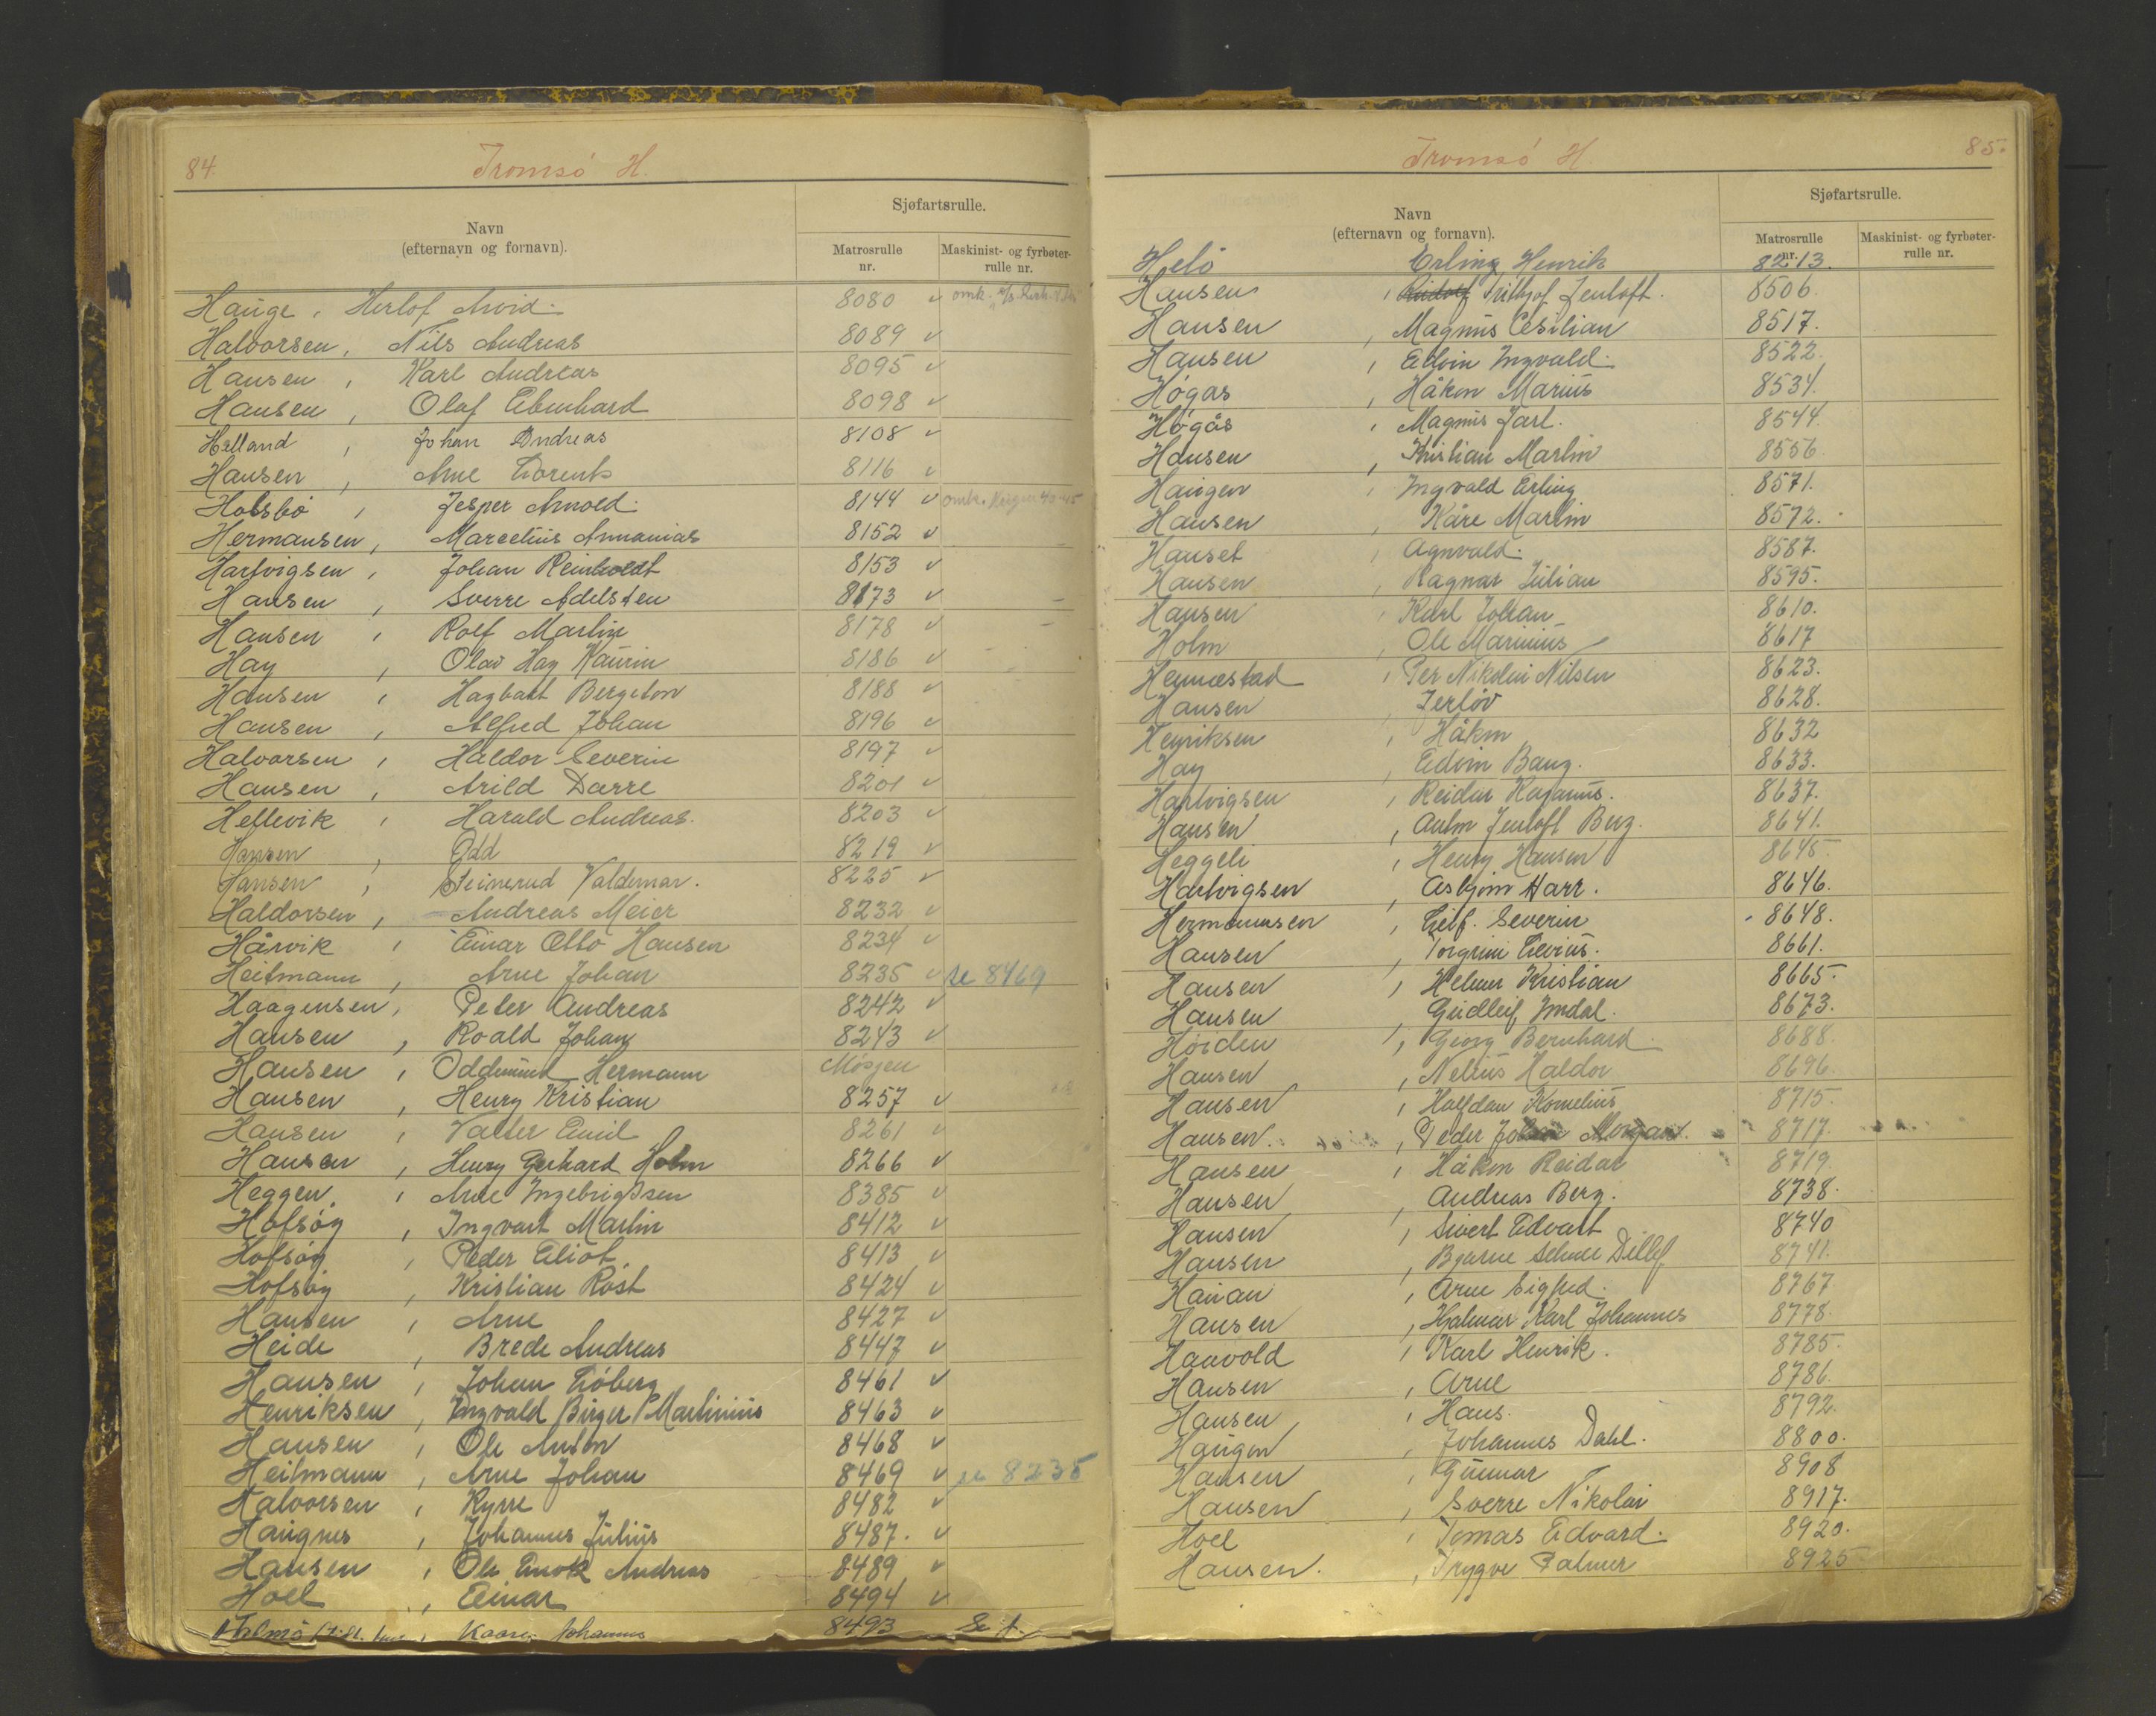 84.
Tromsö H.
Navn
(efternavn og fornavn).
Sjøfartsrulle.
Matrosrulle nr.
Maskinist- og fyrbøter-rulle nr.
Hauge, Herlof Arvid. 8080 v omk.
Halvorsen, Nils Andreas 8089 v
Hansen, Karl Andreas 8095 v
Hansen, Olaf Edenhard 8098 v
Helland, Johan Andreas 8108 v
Hansen, Arne Lorents 8116 v
Holsbö, Jesper Arnold. 8144 v omk. 40-45
Hermansen, Marcelius Annanias 8152 v
Hartvigsen, Johan Reinholdt 8153 v
Hansen, Sverre Adelsten 8173 v
Hansen, Rolf Martin 8178 v
Hay, Olav Hay Kaurin 8186 v
Hansen, Hagbart Bergiton 8188 v
Hansen, Alfred Johan 8196 v
Halvorsen, Haldor Severin 8197 v
Hansen, Arild Darre 8201 v
Hellevik, Harald Andreas. 8203 v
Hansen, Odd 8219 v
Hansen, Steinerud Valdemar. 8225 v
Haldorsen, Andreas Meier 8232 v
Hårvik, Einar Otto Hansen 8234 v
Heitmann, Arne Johan 8235 v se 8469
Haagensen, Peter Andreas 8242 v
Hansen, Roald Johan 8243 v
Hansen, Oddmund Hermann Mosjøen
Hansen, Henry Kristian 8257 v
Hansen, Valter Emil 8261 v
Hansen, Henry Gerhard Holm 8266 v
Heggen, Arne Ingebrigtsen 8385 v
Hofsöy, Ingvart Martin 8412 v
Hofsöy, Peder Eliot 8413 v
Hofsöy, Kristian Röst 8424 v
Hansen, Arne 8427 v
Heide, Brede Andreas 8447 v
Hansen, Johan Töberg 8461 v
Henriksen, Ingvald Birger Martinius 8463 v
Hansen, Ole Anton 8468 v
Heitmann, Arne Johan 8469 v se 8235
Halvorsen, Kyrre 8482 v
Haugnes, Johannes Julius 8487. v
Hansen, Ole Enok Andreas 8489 v
Hoel, Einar 8494 v
Holmö, Kaare Johannes 8493
Tromsö H.
85.
Navn
(efternavn og fornavn).
Sjøfartsrulle.
Matrosrulle nr.
Maskinist- og fyrbøter-rulle nr.
Helö Erling Henrik 8213.
Hansen, Rudolf Fritjof Jentoft. 8506.
Hansen, Magnus Cesilian 8517.
Hansen, Edvin Ingvald. 8522.
Högas, Håkon Marius 8534.
Högås, Magnus Jarl. 8544.
Hansen, Kristian Martin 8556
Haugen, Ingvald Erling 8571.
Hansen, Kåre Martin 8572.
Hanset, Agnvald. 8587.
Hansen, Ragnar Julian 8595.
Hansen, Karl Johan 8610.
Holm, Ole Marinius 8617
Hennestad, Per Nikolai Nilsen 8623.
Hansen, Jerlöv 8628.
Henriksen, Håkon 8632
Hay, Edvin Bang. 8633.
Hartvigsen, Reidar Kasanus. 8637.
Hansen, Anton Jentoft Berg. 8641.
Heggeli, Henry Hansen 8645
Hartvigsen, Asbjörn Harr. 8646.
Hermansen, Leif. Severin 8648.
Hansen, Torgrim Levius. 8661.
Hansen, Helmer Kristian 8665.
Hansen, Gudleif Imdal. 8673.
Höiden, Georg Bernhard. 8688.
Hansen, Nelius Haldor 8696.
Hansen, Halfdan Kornelius 8715.
Hansen., Peder Johan Morgan. 8717.
Hansen, Håkon Reidar 8719.
Hansen, Andreas Berg. 8738.
Hansen, Sivert Edvart 8740
Hansen, Bjarne Selmer Ditlef 8741.
Hanan, Arne Sigfred. 8767.
Hansen, Hjalmar Karl Johannes 8778.
Haavold, Karl Henrik. 8785.
Hansen, Arne 8786.
Hansen, Hans. 8792.
Haugen, Johannes Dahl. 8800.
Hansen, Gunnar 8908
Hansen, Sverre Nikolai 8917.
Hoel, Tomas Edvard. 8920.
Hansen., Trygve Palmer 8925